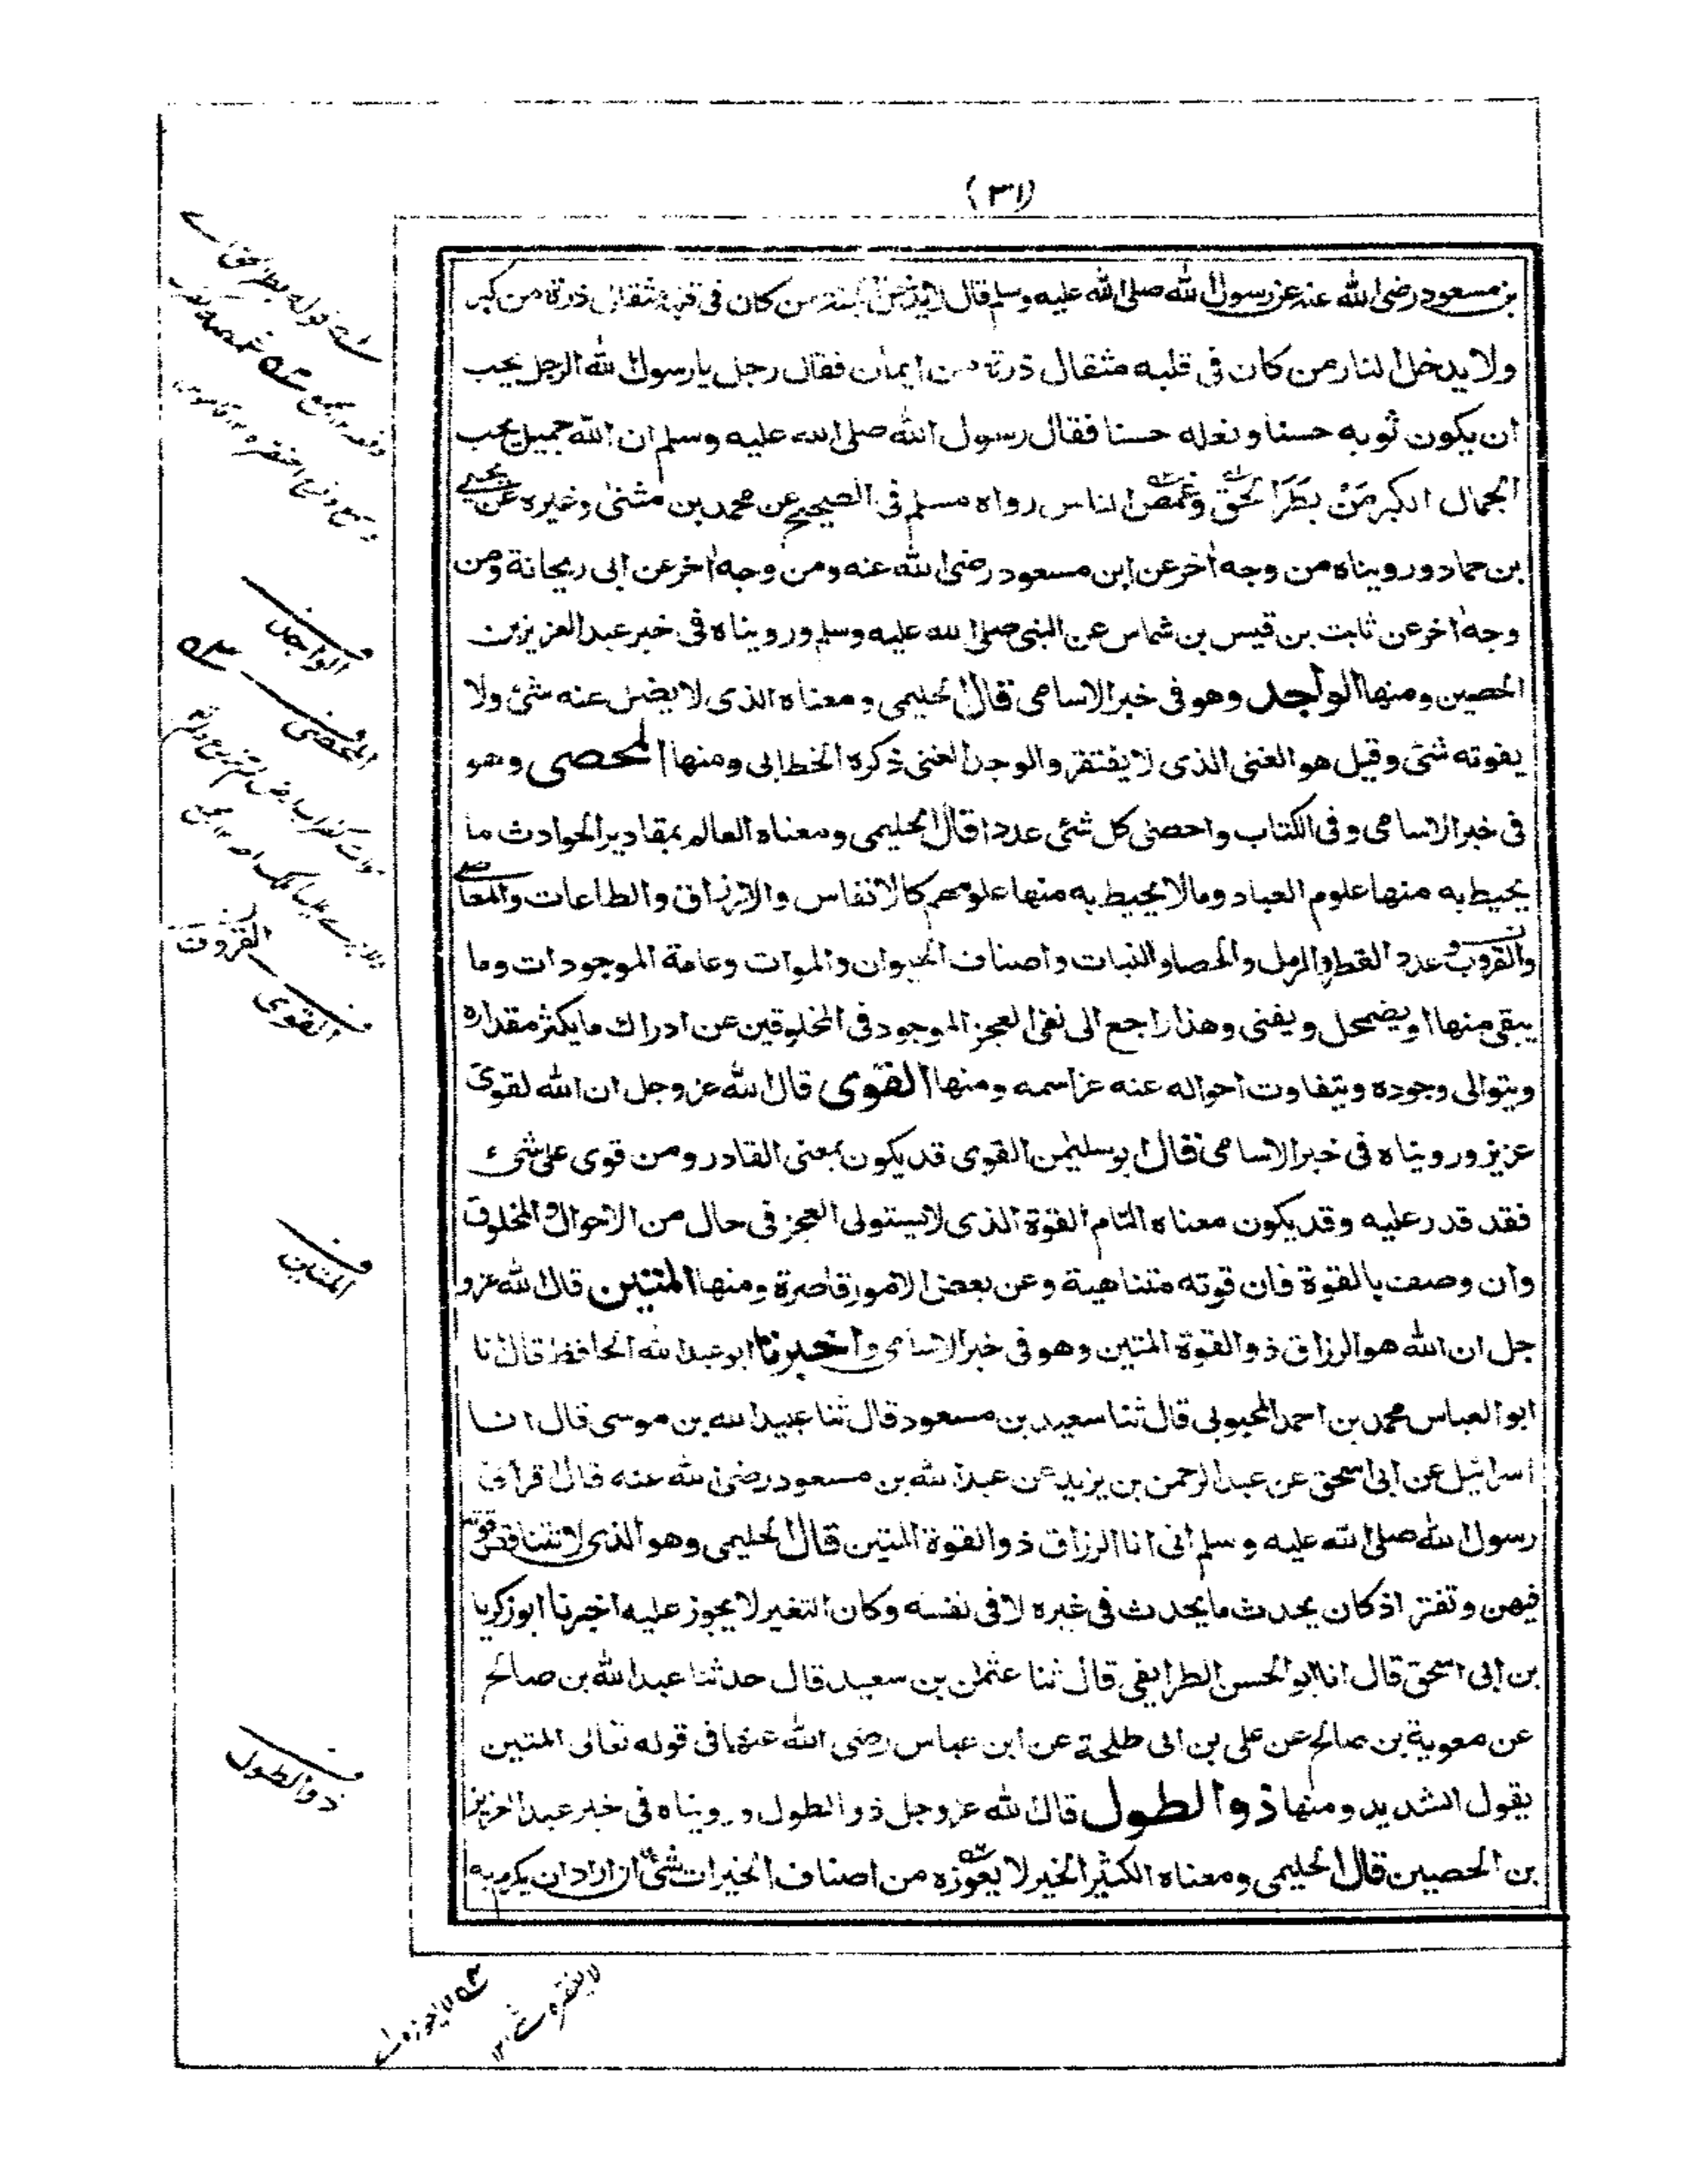 (٣١)
بن مسعود رضى الله عنه عن رسول الله صلى الله عليه وسلم قال لا يدخل الجنة من كان فى قلبه مثقال ذرة من كبر
ولا يدخل النار من كان فى قلبه مثقال ذرة من ايمان فقال رجل يا رسول الله الرجل يحب
ان يكون ثوبه حسنا ونعله حسنا فقال رسول الله صلى الله عليه وسلم ان الله جميل يحب
الجمال الكبر مَنْ بَطَرَ الحق وغمص الناس رواه مسلم فى الصحيح عن محمد بن مثنى وغيره عن يحيى
بن حماد ورويناه من وجه اٰخر عن ابن مسعود رضى الله عنه ومن وجه اٰخر عن ابى ريحانة ومن
وجه اٰخر عن ثابت بن قيس بن شماس عن النبى صلى الله عليه وسلم ورويناه فى خبر عبد العزيز بن
الحصين ومنها الواجد وهو فى خبر الاسامى قال الحليمى ومعناه الذى لا يضل عنه شئ ولا
يفوته شئ وقيل هو الغنى الذى لا يفتقر والوجد الغنى ذكره الخطابى ومنها المحصى وهو
فى خبر الاسامى وفى الكتاب واحصى كل شئ عددا قال الحليمى ومعناه العالم بمقادير الحوادث ما
يحيط به منها علوم العباد وما لا يحيط به منها علومهم كالانفاس والارزاق والطاعات والمعاصى
والقروب عدد القطر والرمل والحصا والنبات واصناف الحيوان والموات وعامة الموجودات وما
يبقى منها او يضمحل ويفنى وهذا راجع الى نفى العجز الموجود فى المخلوقين عن ادراك ما يكثر مقداره
ويتوالى وجوده ويتفاوت احواله عنه عز اسمه ومنها القوى قال الله عز وجل ان الله لقوى
عزيز ورويناه فى خبر الاسامى قال ابو سليمن القوى قد يكون بمعنى القادر ومن قوى على شىء
فقد قدر عليه وقد يكون معناه التام القوة الذى لا يستولى العجز فى حال من الاحوال والمخلوق
وان وصف بالقوة فان قوته متناهية وعن بعض الامور قاصرة ومنها المتين قال الله عز و
جل ان الله هو الرزاق ذو القوة المتين وهو فى خبر الاسامى واخبرنا ابو عبد الله الحافظ قال انا
ابو العباس محمد بن احمد المحبوبى قال ثنا سعيد بن مسعود قال ثنا عبيد الله بن موسى قال انا
اسرائيل عن ابى اسحق عن عبد الرحمن بن يزيد عن عبد الله بن مسعود رضى الله عنه قال اقرأنى
رسول الله صلى الله عليه وسلم انى انا الرزاق ذو القوة المتين قال الحليمى وهو الذى لا تتناقص قوته
فيهن وتفتر اذ كان يحدث ما يحدث فى غيره لا فى نفسه وكان التغير لا يجوز عليه اخبرنا ابو زكريا
بن ابى اسحق قال انا ابو الحسن الطرايفى قال ثنا عثمٰن بن سعيد قال حدثنا عبد الله بن صالح
عن معوية بن صالح عن على بن ابى طلحة عن ابن عباس رضى الله عنهما فى قوله تعالى المتين
يقول الشديد ومنها ذو الطول قال الله عز وجل ذو الطول ورويناه فى خبر عبد العزيز
بن الحصين قال الحليمى ومعناه الكثير الخير لا يعوزه من اصناف الخيرات شئ ان اراد ان يكرم به
الواجد
المحصى
القرون
القوى
المتين
ذو الطول